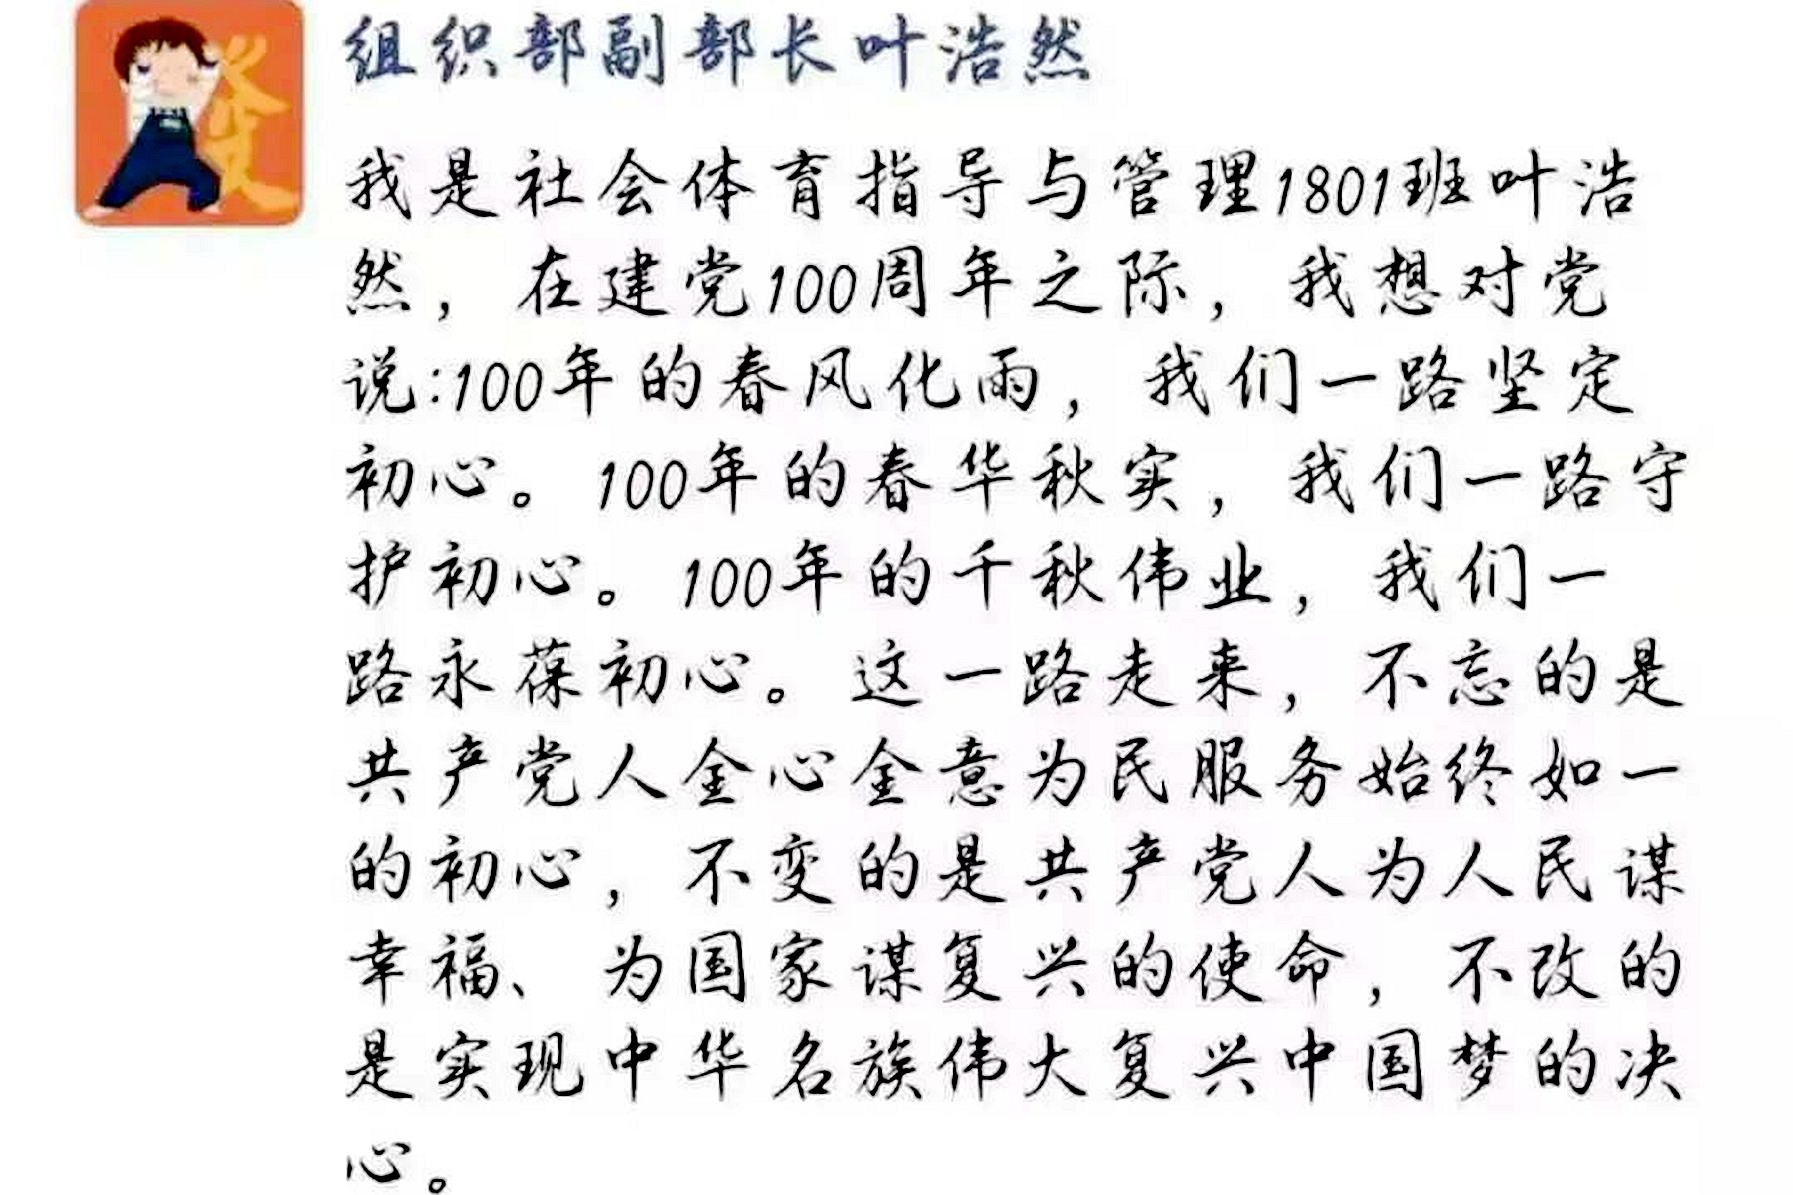 组织部副部长叶浩然
我是社会体育指导与管理1801班叶浩
然，在建党100周年之际，我想对党
说:100年的春风化雨，我们一路坚定
初心。100年的春华秋实，我们一路守
护初心。100年的千秋伟业，我们一
路永葆初心。这一路走来，不忘的是
共产党人全心全意为民服务始终如一
的初心，不变的是共产党人为人民谋
幸福、为国家谋复兴的使命，不改的
是实现中华名族伟大复兴中国梦的决
心。